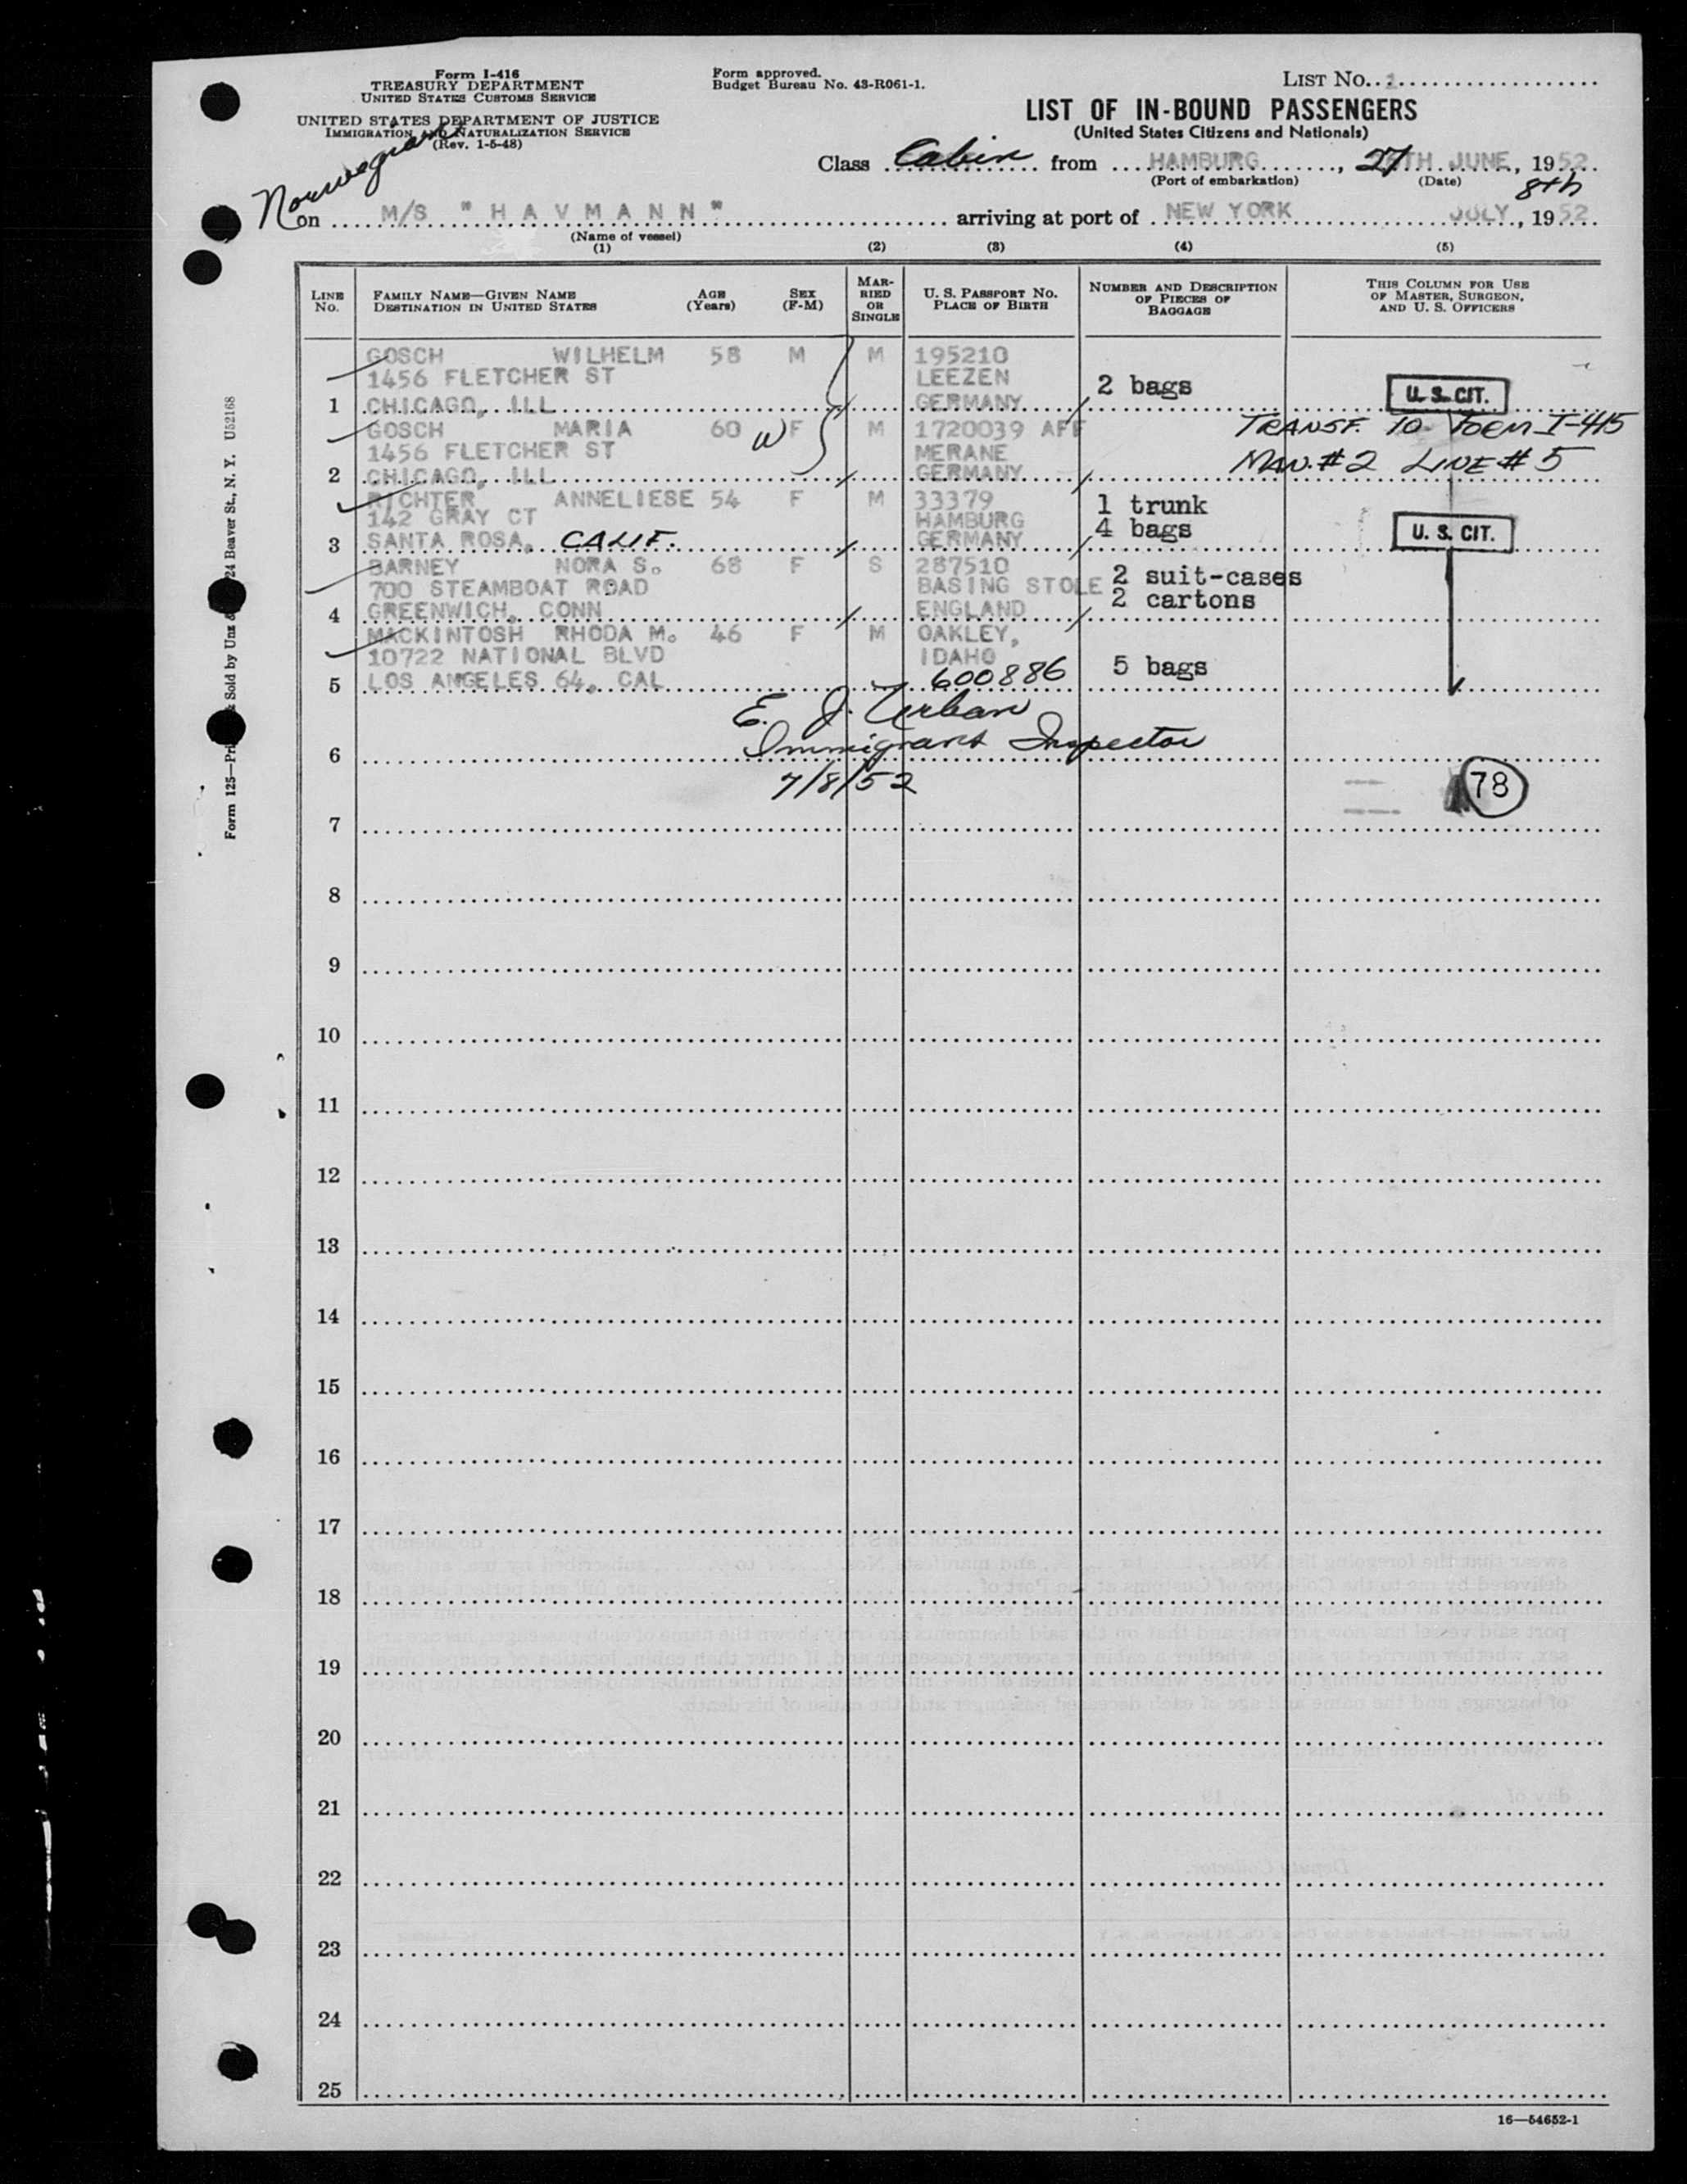 Form I-416
TREASURY DEPARTMENT
UNITED STATES CUSTOMS SERVICE
UNITED STATES DEPARTMENT OF JUSTICE
IMMIGRATION AND NATURALIZATION SERVICE
(Rev. 1-5-48)
Form approved.
Budget Bureau No. 43-R061-1.
LIST No. 1
LIST OF IN-BOUND PASSENGERS
(United States Citizens and Nationals)
Class Cabin from HAMBURG, 27TH JUNE, 1952
(Port of embarkation) (Date)
Norwegian
8th
on M/S "HAVMANN" arriving at port of NEW YORK JULY, 1952
(Name of vessel)
(1) (2) (3) (4) (5)
LINE No. FAMILY NAME—GIVEN NAME DESTINATION IN UNITED STATES AGE (Years) SEX (F-M) MARRIED OR SINGLE U. S. PASSPORT NO. PLACE OF BIRTH NUMBER AND DESCRIPTION OF PIECES OF BAGGAGE THIS COLUMN FOR USE OF MASTER, SURGEON, AND U. S. OFFICERS
GOSCH WILHELM 58 M M 195210
1456 FLETCHER ST LEEZEN 2 bags U. S. CIT.
1 CHICAGO, ILL GERMANY
GOSCH MARIA 60 W F M 1720039 AFF TRANSF. TO FORM I-415
1456 FLETCHER ST MERANE MAN. #2 LINE #5
2 CHICAGO, ILL GERMANY
RICHTER ANNELIESE 54 F M 33379 1 trunk
142 GRAY CT HAMBURG 4 bags U. S. CIT.
3 SANTA ROSA, CALIF. GERMANY
BARNEY NORA S. 68 F S 287510 2 suit-cases
700 STEAMBOAT ROAD BASING STOLE 2 cartons
4 GREENWICH, CONN ENGLAND
MACKINTOSH RHODA M. 46 F M OAKLEY,
10722 NATIONAL BLVD IDAHO 5 bags
5 LOS ANGELES 64, CAL 600886
E. J. Urban
6 Immigrant Inspector
7/8/52 78
7
8
9
10
11
12
13
14
15
16
17
18
19
20
21
22
23
24
25
16—54652-1
Form 125—Pri & Sold by Unz & 24 Beaver St., N. Y. U52168